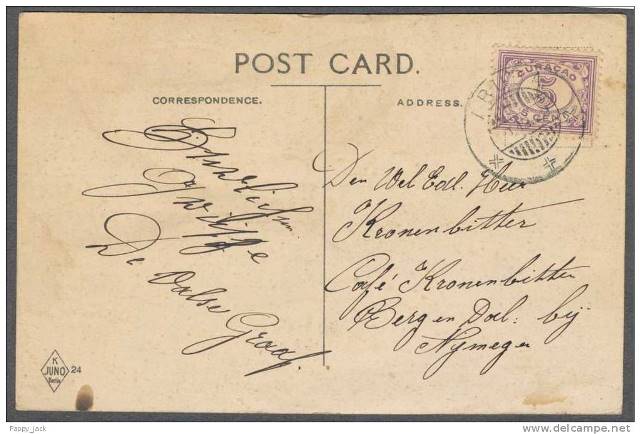 POST CARD.
CORRESPONDENCE.
ADDRESS.
CURAÇAO
5
5 CENT
ARUBA
De Valse Graaf.
Den Wel Edl. Heer
Kronenbitter
Café Kronenbitter
Berg en Dal: bij
Nijmegen
K
JUNO
Berlin
24
Fappy_jack
www.delcampe.net